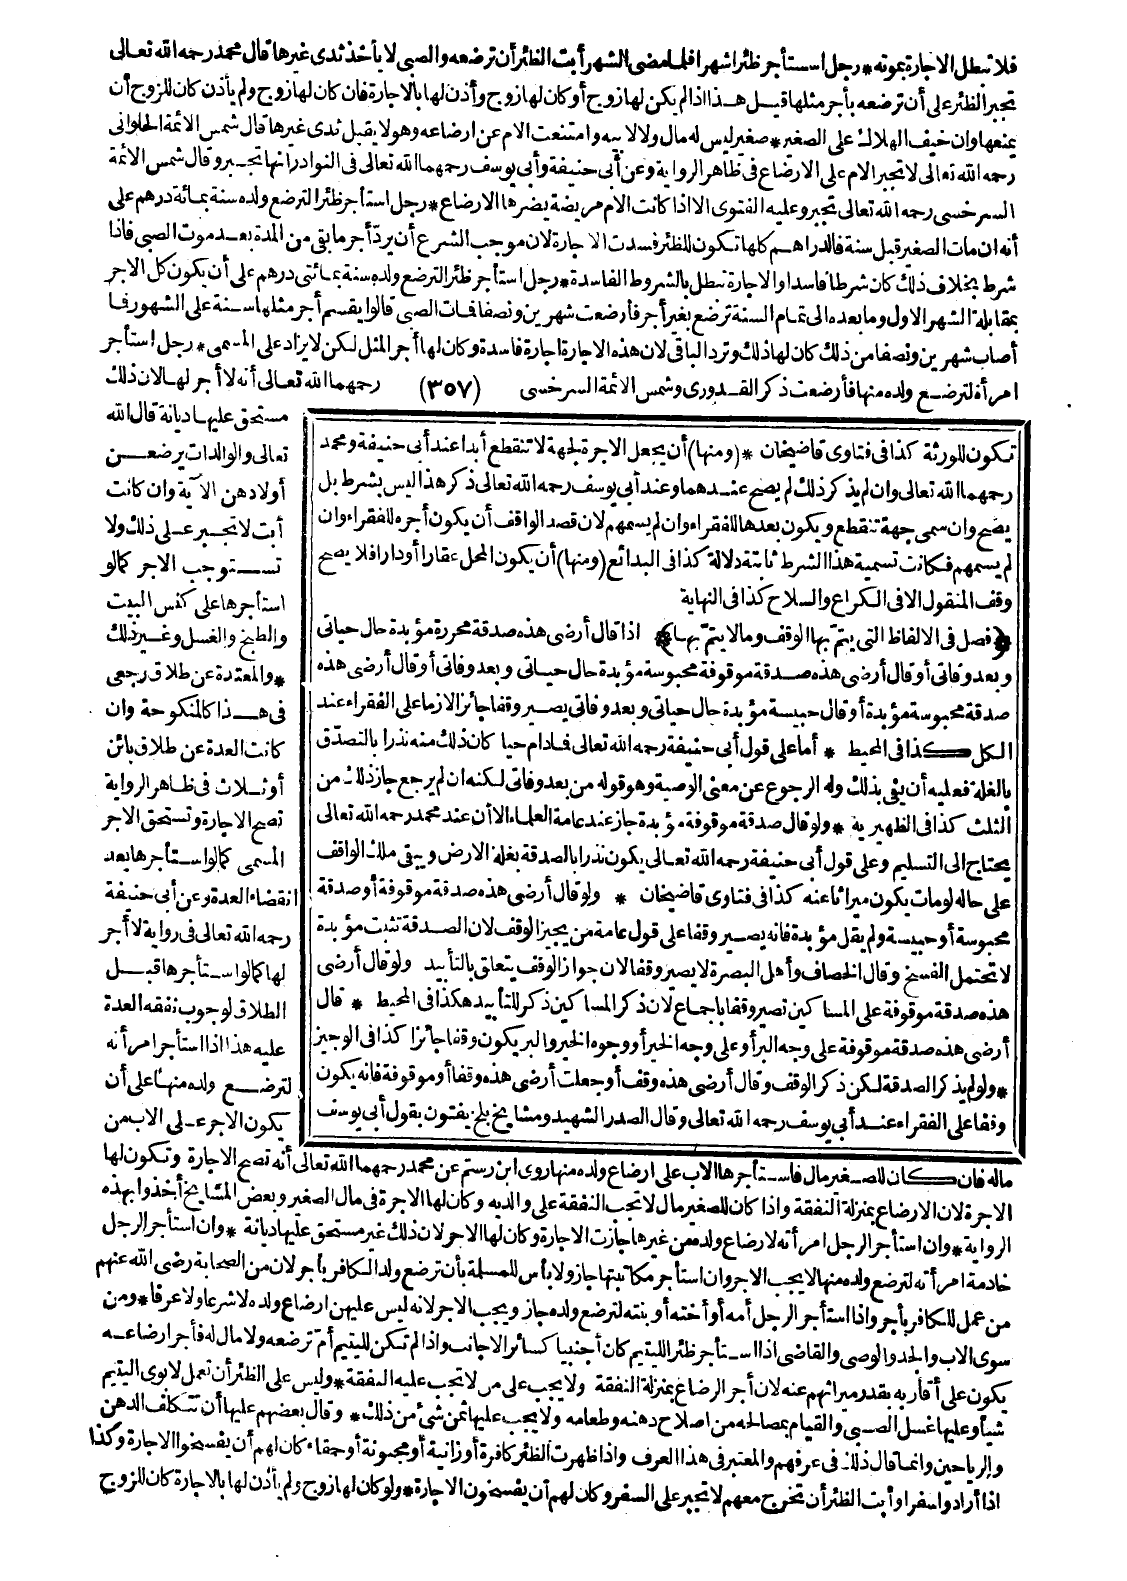 فلا تبطل الاجارة بموته * رجل استأجر ظئرا شهرا فلما مضى الشهر أبت الظئر أن ترضعه والصبي لا يأخذ ثدى غيرها قال محمد رحمه الله تعالى
تجبر الظئر على أن ترضعه بأجر مثلها قيل هذا اذا لم يكن لها زوج أو كان لها زوج وأذن لها بالاجارة فان كان لها زوج ولم يأذن كان للزوج أن
يمنعها وان خيف الهلاك على الصغير * صغير ليس له مال ولا لابيه وامتنعت الام عن ارضاعه وهو لا يقبل ثدى غيرها قال شمس الائمة الحلوانى
رحمه الله تعالى لا تجبر الام على الارضاع فى ظاهر الرواية وعن أبى حنيفة وأبى يوسف رحمهما الله تعالى فى النوادر انها تجبر وقال شمس الائمة
السرخسى رحمه الله تعالى تجبر وعليه الفتوى الا اذا كانت الام مريضة يضرها الارضاع * رجل استأجر ظئرا لترضع ولده سنة بمائة درهم على
أنه ان مات الصغير قبل سنة فالدراهم كلها تكون للظئر فسدت الاجارة لان موجب الشرع أن يرد أجر ما بقى من المدة بعد موت الصبى فاذا
شرط بخلاف ذلك كان شرطا فاسدا والاجارة تبطل بالشروط الفاسدة * رجل استأجر ظئرا لترضع ولده سنة بمائتى درهم على أن يكون كل الاجر
بمقابلة الشهر الاول وما بعده الى تمام السنة ترضع بغير أجر فأرضعت شهرين ونصفا فمات الصبى قالوا يقسم أجر مثلها سنة على الشهور فما
أصاب شهرين ونصفا من ذلك كان لها ذلك وترد الباقى لان هذه الاجارة اجارة فاسدة وكان لها أجر المثل لكن لا يزاد على المسمى * رجل استأجر
امرأة لترضع ولده منها فأرضعت ذكر القدورى وشمس الائمة السرخسى (٣٥٧) رحمهما الله تعالى أنه لا أجر لها لان ذلك
مستحق عليها ديانة قال الله
تعالى والوالدات يرضعن
أولادهن الآية وان كانت
أبت لا تجبر على ذلك ولا
تستوجب الاجر كما لو
استأجرها على كنس البيت
والطبخ والغسل وغير ذلك
* والمعتدة عن طلاق رجعى
فى هذا كالمنكوحة وان
كانت العدة عن طلاق بائن
أو ثلاث فى ظاهر الرواية
تصح الاجارة وتستحق الاجر
المسمى كما لو استأجرها بعد
انقضاء العدة وعن أبى حنيفة
رحمه الله تعالى فى رواية لا أجر
لها كما لو استأجرها قبل
الطلاق لوجوب نفقة العدة
عليه هذا اذا استأجر امرأته
لترضع ولده منها على أن
يكون الاجر على الاب من
تكون للورثة كذا فى فتاوى قاضيخان * (ومنها) أن يجعل الاجرة لجهة لا تنقطع أبدا عند أبى حنيفة ومحمد
رحمهما الله تعالى وان لم يذكر ذلك لم يصح عندهما وعند أبى يوسف رحمه الله تعالى ذكر هذا ليس بشرط بل
يصح وان سمى جهة تنقطع ويكون بعدها للفقراء وان لم يسمهم لان قصد الواقف أن يكون أجره للفقراء وان
لم يسمهم فكانت تسمية هذا الشرط ثابتة دلالة كذا فى البدائع (ومنها) أن يكون المحل عقارا أو دارا فلا يصح
وقف المنقول الا فى الكراع والسلاح كذا فى النهاية
﴿فصل فى الالفاظ التى يتم بها الوقف وما لا يتم بها﴾ اذا قال أرضى هذه صدقة محررة مؤبدة حال حياتى
وبعد وفاتى أو قال أرضى هذه صدقة موقوفة محبوسة مؤبدة حال حياتى وبعد وفاتى أو قال أرضى هذه
صدقة محبوسة مؤبدة أو قال حبيسة مؤبدة حال حياتى وبعد وفاتى يصير وقفا جائزا لازما على الفقراء عند
الكل كذا فى المحيط * أما على قول أبى حنيفة رحمه الله تعالى فمادام حيا كان ذلك منه نذرا بالتصدق
بالغلة فعليه أن يفى بذلك وله الرجوع عن معنى الوصية وهو قوله من بعد وفاتى لكنه ان لم يرجع جاز ذلك من
الثلث كذا فى الظهيرية * ولو قال صدقة موقوفة مؤبدة جاز عند عامة العلماء الا أن عند محمد رحمه الله تعالى
يحتاج الى التسليم وعلى قول أبى حنيفة رحمه الله تعالى يكون نذرا بالصدقة بغلة الارض ويبقى ملك الواقف
على حاله لو مات يكون ميراثا عنه كذا فى فتاوى قاضيخان * ولو قال أرضى هذه صدقة موقوفة أو صدقة
محبوسة أو حبيسة ولم يقل مؤبدة فانه يصير وقفا على قول عامة من يجيز الوقف لان الصدقة تثبت مؤبدة
لا تحتمل الفسخ وقال الخصاف وأهل البصرة لا يصير وقفا لان جواز الوقف يتعلق بالتأبيد ولو قال أرضى
هذه صدقة موقوفة على المساكين تصير وقفا باجماع لان ذكر المساكين ذكر للتأبيد هكذا فى المحيط * قال
أرضى هذه صدقة موقوفة على وجه البر أو على وجه الخير أو وجوه الخير والبر يكون وقفا جائزا كذا فى الوجيز
* ولو لم يذكر الصدقة لكن ذكر الوقف وقال أرضى هذه وقف أو جعلت أرضى هذه وقفا أو موقوفة فانه يكون
وقفا على الفقراء عند أبى يوسف رحمه الله تعالى وقال الصدر الشهيد ومشايخ بلخ يفتون بقول أبى يوسف
ماله فان كان للصغير مال فاستأجرها الاب على ارضاع ولده منها روى ابن رستم عن محمد رحمهما الله تعالى أنه تصح الاجارة وتكون لها
الاجرة لان الارضاع بمنزلة النفقة واذا كان للصغير مال لا تجب النفقة على والديه وكان لها الاجرة فى مال الصغير وبعض المشايخ أخذوا بهذه
الرواية * وان استأجر الرجل امرأته لارضاع ولده من غيرها جازت الاجارة وكان لها الاجر لان ذلك غير مستحق عليها ديانة * وان استأجر الرجل
خادمة امرأته لترضع ولده منها لا يجب الاجر وان استأجر مكاتبتها جاز ولا بأس للمسلمة بأن ترضع ولد الكافر بأجر لان من الصحابة رضى الله عنهم
من عمل للكافر بأجر واذا استأجر الرجل أمه أو أخته أو بنته لترضع ولده جاز ويجب الاجر لانه ليس عليهن ارضاع ولده لا شرعا ولا عرفا * ومن
سوى الاب والجد والوصى والقاضى اذا استأجر ظئرا لليتيم كان أجنبيا كسائر الاجانب واذا لم تكن لليتيم أم ترضعه ولا مال له فأجر ارضاعه
يكون على أقاربه بقدر ميراثهم عنه لان أجر الرضاع بمنزلة النفقة ولا يجب على من لا تجب عليه النفقة * وليس على الظئر أن تعمل لابوى اليتيم
شيأ وعليها غسل الصبى والقيام بمصالحه من اصلاح دهنه وطعامه ولا يجب عليها ثمن شئ من ذلك * وقال بعضهم عليها أن تتكلف الدهن
والرياحين وانما قال ذلك فى عرفهم والمعتبر فى هذا العرف واذا ظهرت الظئر كافرة أو زانية أو مجنونة أو حمقاء كان لهم أن يفسخوا الاجارة وكذا
اذا أرادوا سفرا وأبت الظئر أن تخرج معهم لا تجبر على السفر وكان لهم أن يفسخوا الاجارة * ولو كان لها زوج ولم يأذن لها بالاجارة كان للزوج